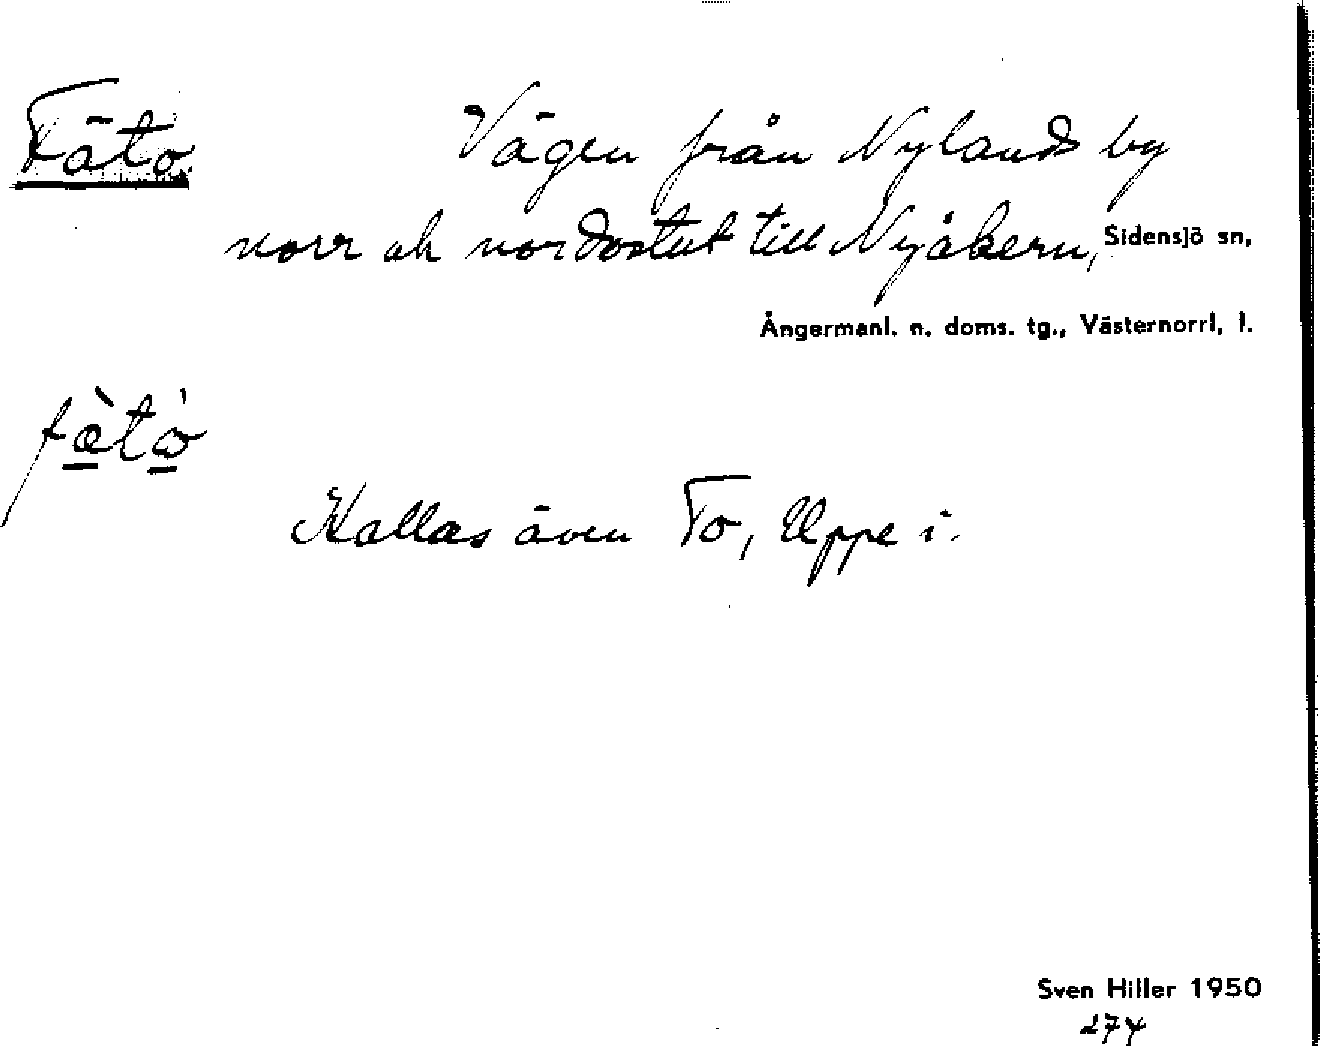 Fäto. Vägen från Nylands by
norr ok nordostut till Nyåkern, Sidensjö sn,
Ångermanl. n. doms. tg., Västernorrl. l.
fæ̀tó
Kallas även To, Uppe i.
Sven Hiller 1950
274